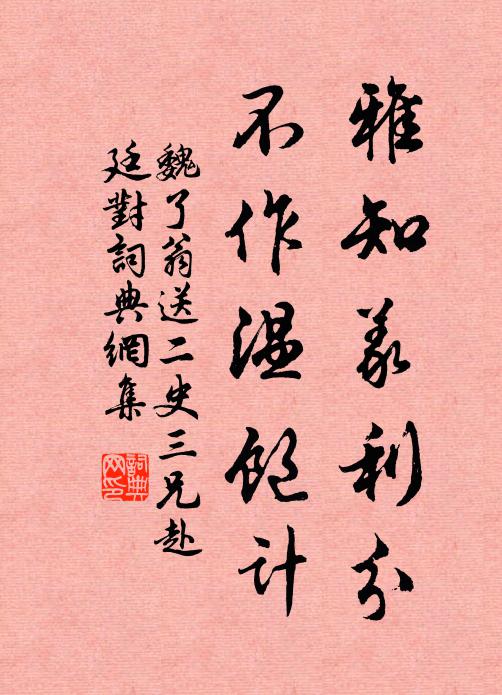 雅知義利分
不作温飽計
魏了翁送二史三兄赴
廷對詞典網集
詞典
网印